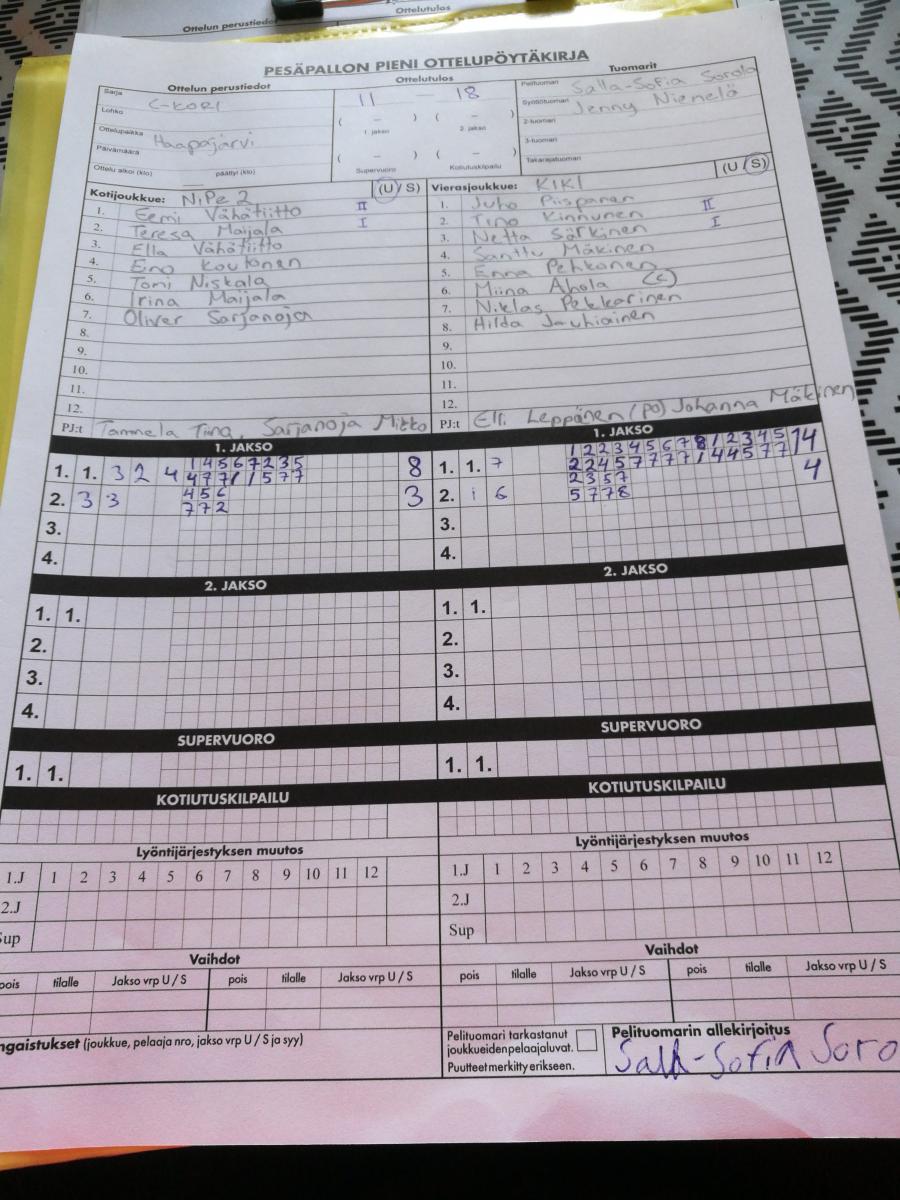 Ottelutulos
Ottelun perustiedot
PESÄPALLON PIENI OTTELUPÖYTÄKIRJA
Ottelun perustiedot
Ottelutulos
Tuomarit
Sarja C-KORI
11 — 18
Pelituomari Salla-Sofia Sorola
Lohko
( – ) ( – )
Syöttötuomari Jenny Nienelä
1. jakso 2. jakso
2-tuomari
Ottelupaikka Haapajärvi
3-tuomari
Päivämäärä
( – ) ( – )
Takarajatuomari
Ottelu alkoi (klo) päättyi (klo)
Supervuoro Kotiutuskilpailu
Kotijoukkue: NiPe 2 (U / S)
1. Eemi Vähätiitto II
2. Teresa Maijala I
3. Ella Vähätiitto
4. Eino Koutonen
5. Tomi Niskala
6. Irina Maijala
7. Oliver Sarjanoja
8.
9.
10.
11.
12.
PJ:t Tammela Tiina, Sarjanoja Mikko
Vierasjoukkue: KIKI (U / S)
1. Juho Piispanen II
2. Tino Kinnunen I
3. Netta Särkinen
4. Santtu Mäkinen
5. Enna Pehkonen
6. Miina Ahola (c)
7. Niklas Pekkarinen
8. Hilda Jauhiainen
9.
10.
11.
12.
PJ:t Elli Leppänen (PO) Johanna Mäkinen
1. JAKSO
1. 1. 3 2 4 1 4 5 6 7 2 3 5 8
4 7 7 1 1 5 7 7
2. 3 3 4 5 6 3
7 7 2
3.
4.
1. JAKSO
1 2 2 3 4 5 6 7 8 1 2 3 4 5 14
1. 1. 7 2 2 4 5 7 7 7 7 1 4 4 5 7 7
2 3 5 7 4
2. 1 6 5 7 7 8
3.
4.
2. JAKSO
1. 1.
2.
3.
4.
2. JAKSO
1. 1.
2.
3.
4.
SUPERVUORO
1. 1.
SUPERVUORO
1. 1.
KOTIUTUSKILPAILU
KOTIUTUSKILPAILU
Lyöntijärjestyksen muutos
1.J 1 2 3 4 5 6 7 8 9 10 11 12
2.J
Sup
Lyöntijärjestyksen muutos
1.J 1 2 3 4 5 6 7 8 9 10 11 12
2.J
Sup
Vaihdot
pois tilalle Jakso vrp U / S pois tilalle Jakso vrp U / S
Vaihdot
pois tilalle Jakso vrp U / S pois tilalle Jakso vrp U / S
ngaistukset (joukkue, pelaaja nro, jakso vrp U / S ja syy)
Pelituomari tarkastanut
joukkueidenpelaajaluvat.
Puutteet merkitty erikseen.
Pelituomarin allekirjoitus
Salla-Sofia Soro